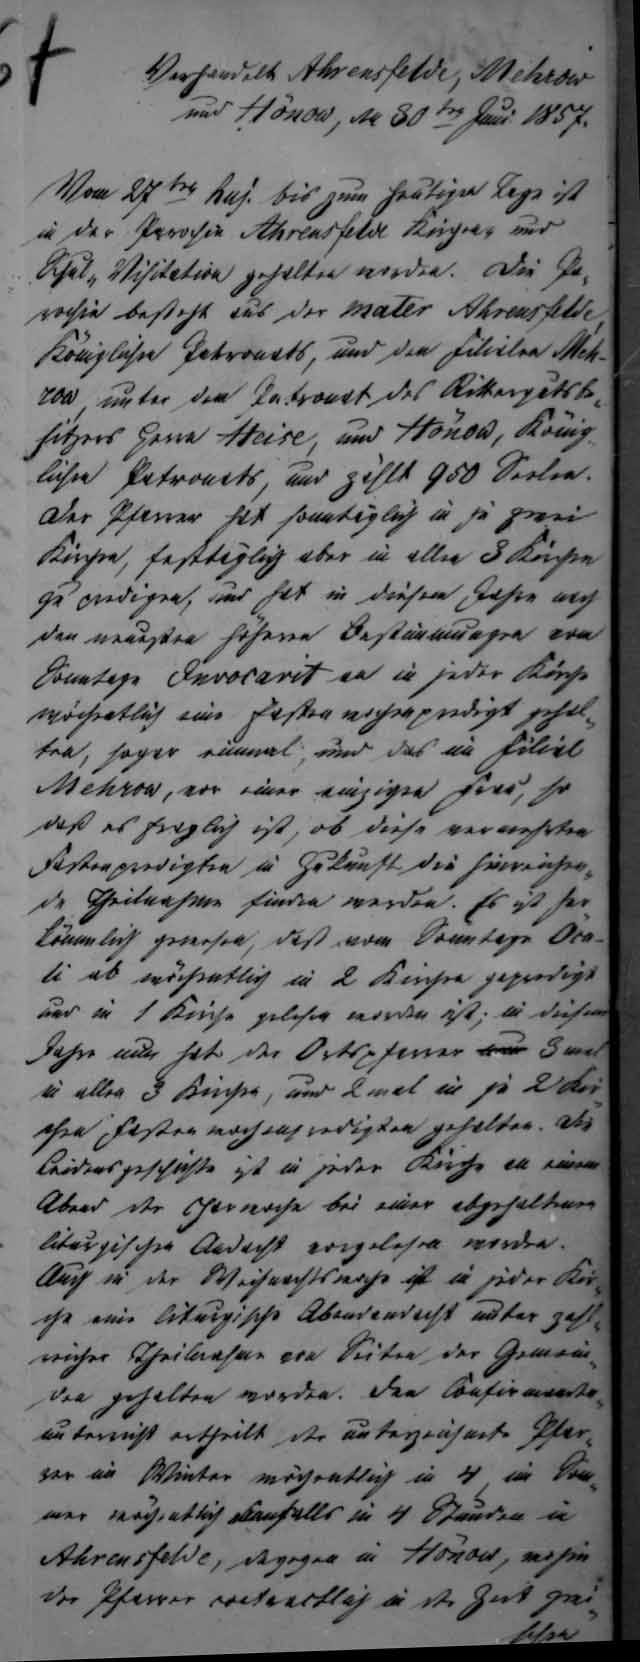 67
Verhandelt Ahrensfelde, Mehrow
und Hönow, den 30ten Juni 1857.
Vom 27ten huj. bis zum heutigen Tage ist
in der Parochie Ahrensfelde Kirchen- und
Schul-Visitation gehalten worden. Die Pa-
rochie besteht aus der mater Ahrensfelde,
Königlichen Patronats, und den Filialen Meh-
row, unter dem Patronat des Rittergutsbe-
sitzers Herrn Heise, und Hönow, König-
lichen Patronats, und zählt 950 Seelen.
Der Pfarrer hat sonntäglich in je zwei
Kirchen, festtäglich aber in allen 3 Kirchen
zu predigen, und hat in diesem Jahre nach
den neuesten höheren Bestimmungen vom
Sonntage Invocavit an in jeder Kirche
wöchentlich eine Fastenwochenpredigt gehal-
ten, sogar einmal, und das im Filial
Mehrow, vor einer einzigen Frau, so
daß es fraglich ist, ob diese vermehrten
Fastenpredigten in Zukunft die hinreichen-
de Theilnahme finden werden. Es ist her
kömmlich gewesen, daß vom Sonntage Ocu-
li ab wöchentlich in 2 Kirchen gepredigt
und in 1 Kirche gelesen worden ist; in diesem
Jahre nun hat der Ortspfarrer 3 mal
in allen 3 Kirchen, und 2 mal in je 2 Kir-
chen Fastenwochenpredigten gehalten. Die
Leidensgeschichte ist in jeder Kirche an einem
Abend der Charwoche bei einer abgehaltenen
liturgischen Andacht vorgelesen worden.
Auch in der Weihnachtswoche ist in jeder Kir-
che eine liturgische Abendandacht unter zahl-
reicher Theilnahme von Seiten der Gemein-
den gehalten worden. Den Confirmanden-
unterricht ertheilt der unterzeichnete Pfar-
rer im Winter wöchentlich in 4, im Som-
mer wöchentlich ebenfalls in 4 Stunden in
Ahrensfelde, dagegen in Hönow, wohin
der Pfarrer contractlich in der Zeit zwi-
schen